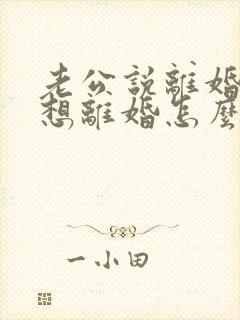 老公說離婚
想離婚怎麼
一小田